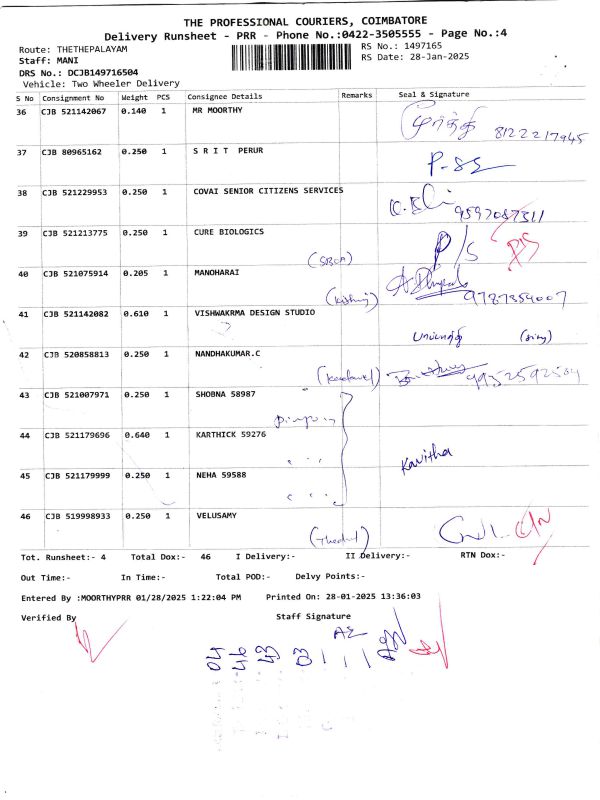 THE PROFESSIONAL COURIERS, COIMBATORE
Delivery Runsheet - PRR - Phone No.:0422-3505555 - Page No.:4
Route: THETHEPALAYAM
RS No.: 1497165
Staff: MANI
RS Date: 28-Jan-2025
DRS No.: DCJB149716504
Vehicle: Two Wheeler Delivery
S No Consignment No Weight PCS Consignee Details Remarks Seal & Signature
36 CJB 521142067 0.140 1 MR MOORTHY மூர்த்தி 8122217945
37 CJB 80965162 0.250 1 S R I T PERUR
38 CJB 521229953 0.250 1 COVAI SENIOR CITIZENS SERVICES 9597087311
39 CJB 521213775 0.250 1 CURE BIOLOGICS P/S
40 CJB 521075914 0.205 1 MANOHARAI 9787354007
41 CJB 521142082 0.610 1 VISHWAKRMA DESIGN STUDIO
42 CJB 520858813 0.250 1 NANDHAKUMAR.C
43 CJB 521007971 0.250 1 SHOBNA 58987
44 CJB 521179696 0.640 1 KARTHICK 59276 Kavitha
45 CJB 521179999 0.250 1 NEHA 59588
46 CJB 519998933 0.250 1 VELUSAMY
Tot. Runsheet:- 4 Total Dox:- 46 I Delivery:- II Delivery:- RTN Dox:-
Out Time:- In Time:- Total POD:- Delvy Points:-
Entered By :MOORTHYPRR 01/28/2025 1:22:04 PM Printed On: 28-01-2025 13:36:03
Verified By Staff Signature
04
46
43
03